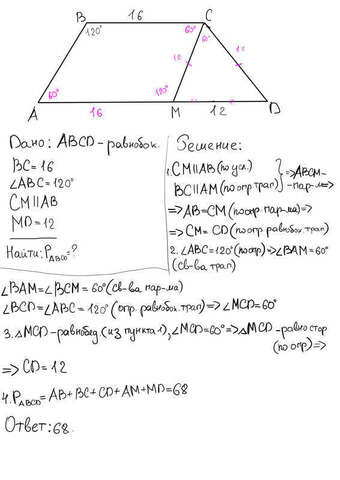 16
B
C
120°
60°
60°
12
12
60°
120°
A
16
M
12
D
Дано: ABCD - равнобок.
BC = 16
∠ABC = 120°
CM || AB
MD = 12
Найти: P ABCD = ?
Решение:
1. CM || AB (по усл.)
BC || AM (по опр. трап)
} => ABCM -
- пар-м =>
=> AB = CM (по опр. пар-ма) =>
=> CM = CD (по опр равнобок. трап)
2. ∠ABC = 120° (по опр) => ∠BAM = 60°
(св-ва трап)
∠BAM = ∠BCM = 60° (св-ва пар-ма)
∠BCD = ∠ABC = 120° (опр. равнобок. трап) => ∠MCD = 60°
3. △MCD - равнобед. (из пункта 1), ∠MCD = 60° => △MCD - равностор
(по опр) =>
=> CD = 12
4. P ABCD = AB + BC + CD + AM + MD = 68
Ответ: 68.